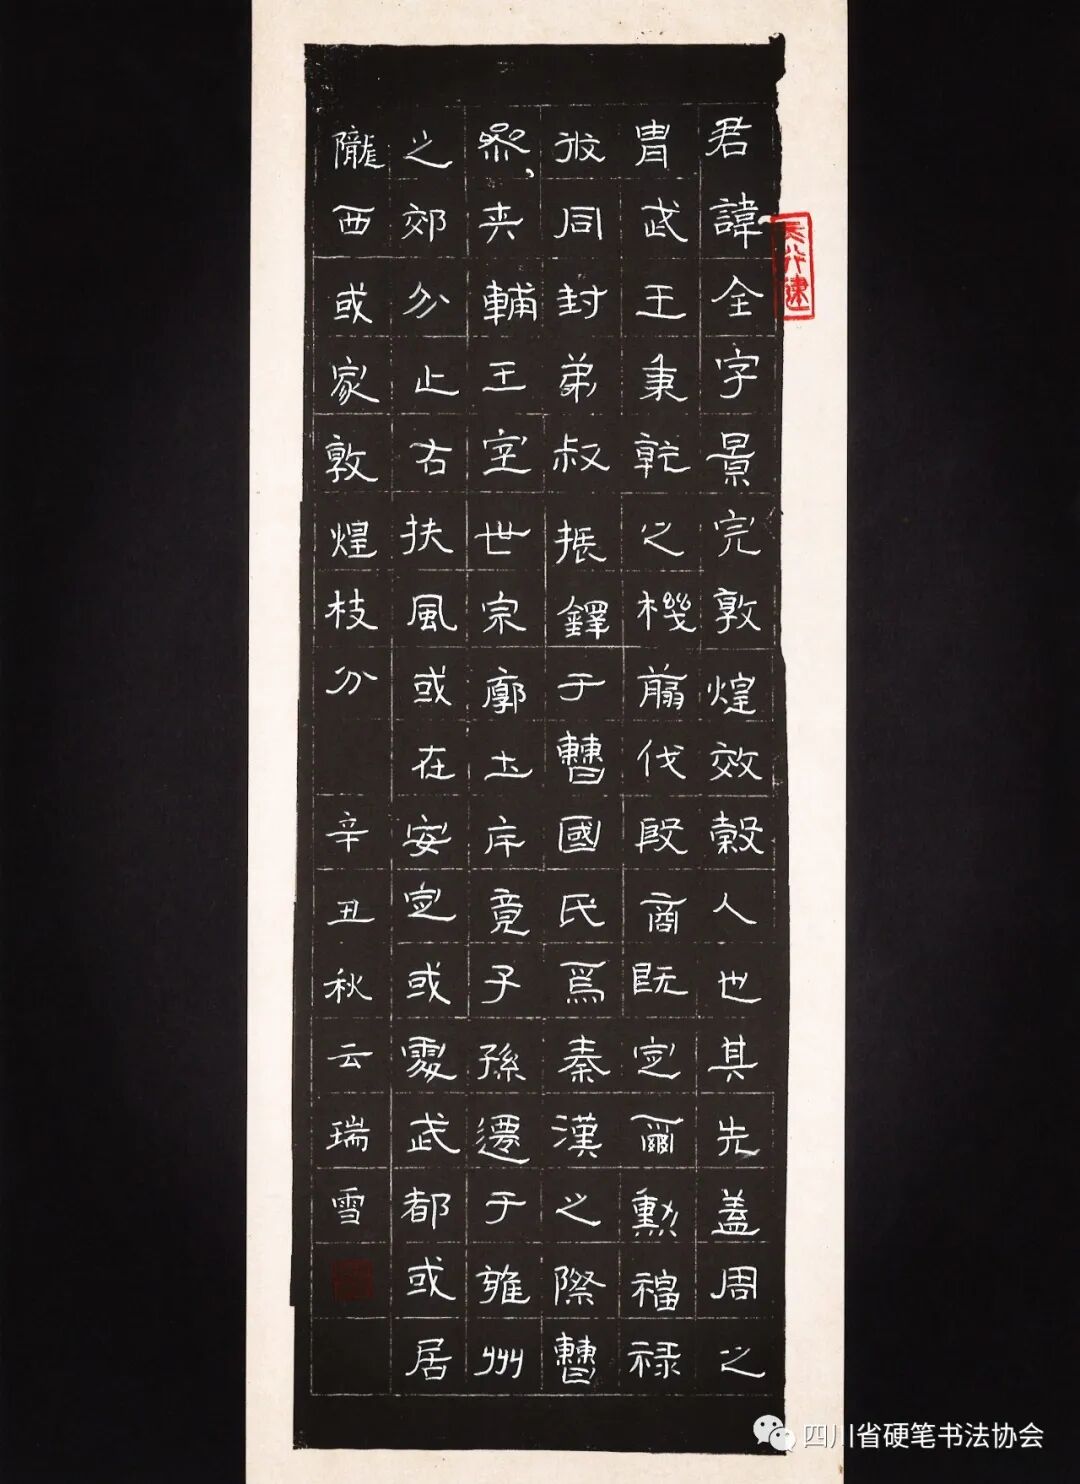 君諱全字景完敦煌效穀人也其先蓋周之
胄武王秉乾之機翦伐殷商既定爾勳福禄
攸同封弟叔振鐸于曹國氏焉秦漢之際曹
參夾輔王室世宗廓土斥竟子孫遷于雍州
之郊分止右扶風或在安定或處武都或居
隴西或家敦煌枝分
辛丑秋云瑞雪
四川省硬笔书法协会